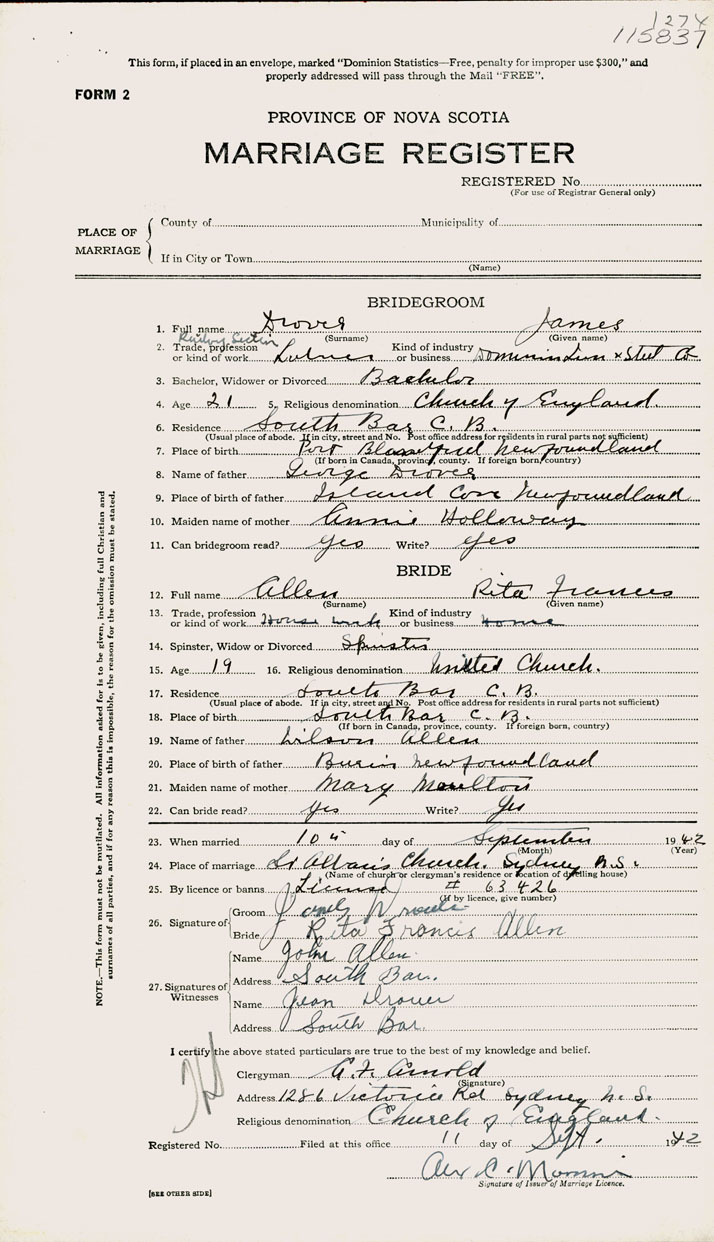 1274
115837
This form, if placed in an envelope, marked "Dominion Statistics—Free, penalty for improper use $300," and
properly addressed will pass through the Mail "FREE".
FORM 2
PROVINCE OF NOVA SCOTIA
MARRIAGE REGISTER
REGISTERED No.
(For use of Registrar General only)
PLACE OF MARRIAGE
County of Municipality of
If in City or Town
(Name)
BRIDEGROOM
1. Full name Drover James
(Surname) (Given name)
2. Trade, profession or kind of work Kind of industry or business Dominion Iron & Steel Co
3. Bachelor, Widower or Divorced Bachelor
4. Age 21 5. Religious denomination Church of England
6. Residence South Bar C. B.
(Usual place of abode. If in city, street and No. Post office address for residents in rural parts not sufficient)
7. Place of birth Port Blandford Newfoundland
(If born in Canada, province, county. If foreign born, country)
8. Name of father George Drover
9. Place of birth of father Island Cove Newfoundland
10. Maiden name of mother Annie Holloway
11. Can bridegroom read? yes Write? yes
BRIDE
12. Full name Allen Rita Frances
(Surname) (Given name)
13. Trade, profession or kind of work House work Kind of industry or business home
14. Spinster, Widow or Divorced Spinster
15. Age 19 16. Religious denomination United Church.
17. Residence South Bar C. B.
(Usual place of abode. If in city, street and No. Post office address for residents in rural parts not sufficient)
18. Place of birth South Bar C. B.
(If born in Canada, province, county. If foreign born, country)
19. Name of father Wilson Allen
20. Place of birth of father Burin Newfoundland
21. Maiden name of mother Mary Moulton
22. Can bride read? Yes Write? Yes
23. When married 10th day of September 1942
(Month) (Year)
24. Place of marriage St Alban's Church. Sydney N.S.
(Name of church or clergyman's residence or location of dwelling house)
25. By licence or banns License # 63426
(If by licence, give number)
26. Signature of
Groom James Drover
Bride Rita Francis Allen
27. Signatures of Witnesses
Name John Allen
Address South Bar.
Name Jean Drover
Address South Bar.
I certify the above stated particulars are true to the best of my knowledge and belief.
Clergyman A. F. Arnold
(Signature)
Address 1286 Victoria Rd Sydney N. S.
Religious denomination Church of England.
Registered No. Filed at this office 11 day of Sept. 1942
Signature of Issuer of Marriage Licence.
[SEE OTHER SIDE]
NOTE.—This form must not be mutilated. All information asked for is to be given, including full Christian and
surnames of all parties, and if for any reason this is impossible, the reason for the omission must be stated.